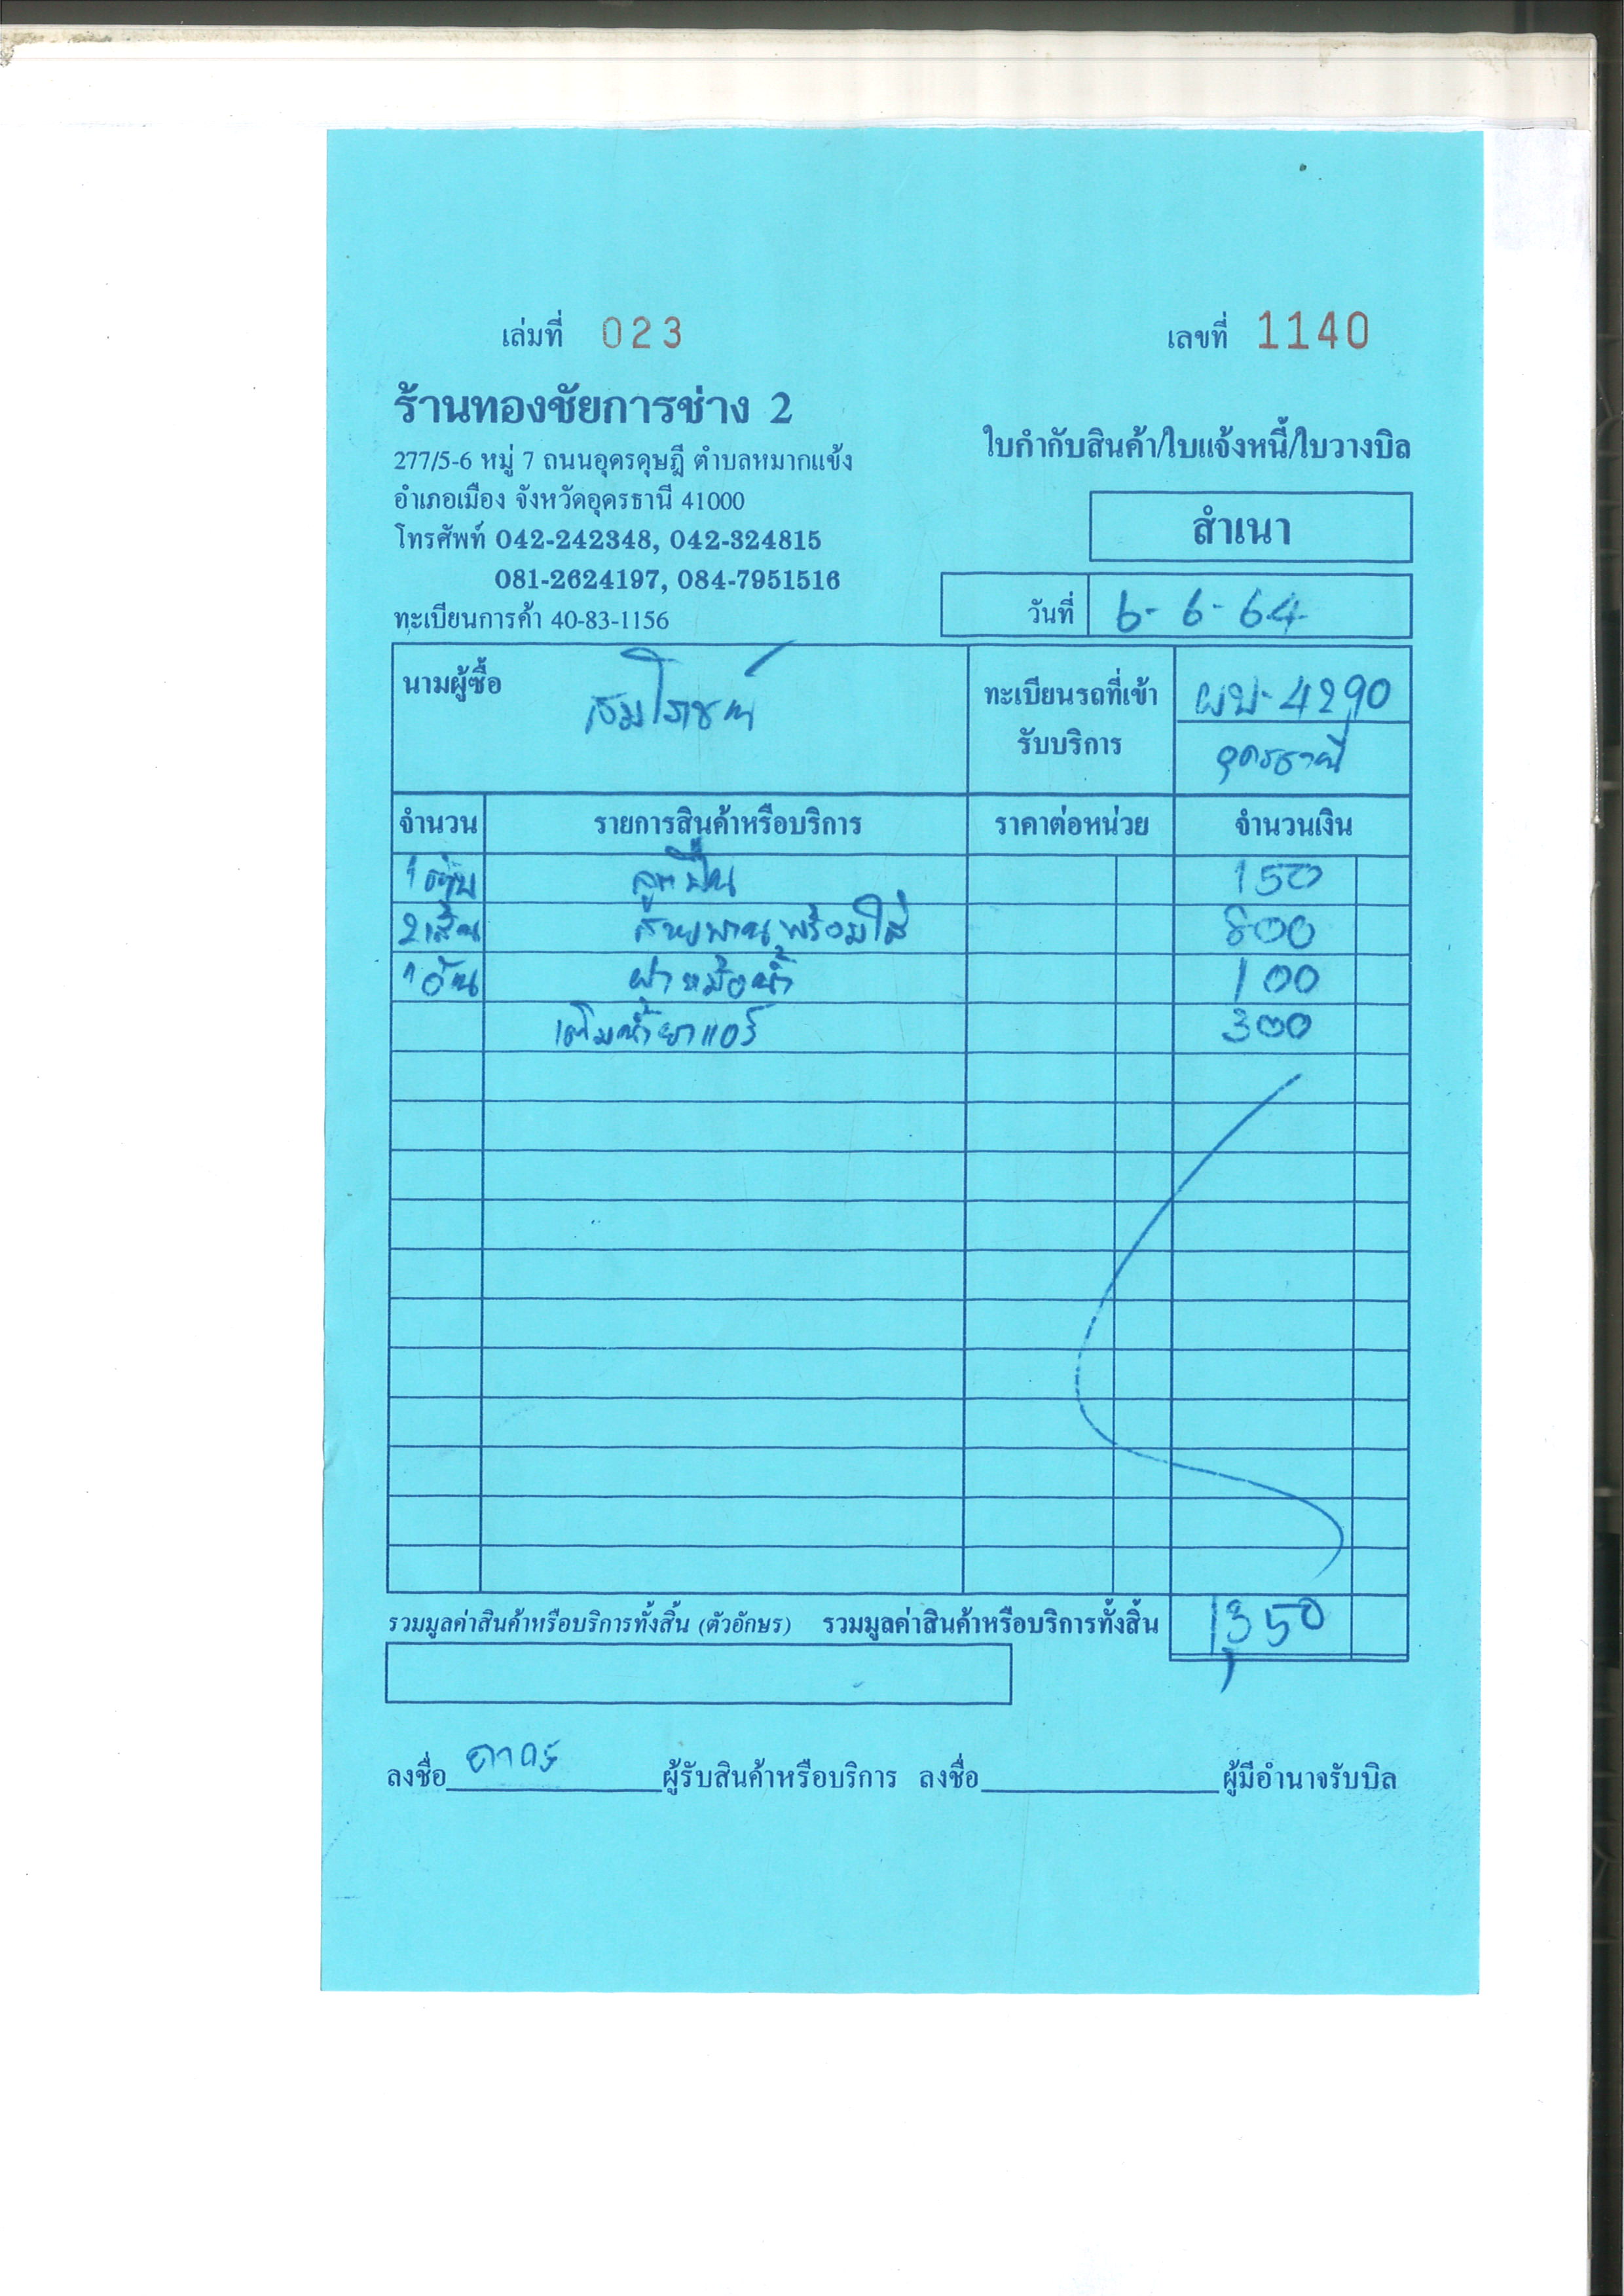 เล่มที่ 023
เลขที่ 1140
ร้านทองชัยการช่าง 2
277/5-6 หมู่ 7 ถนนอุดรดุษฎี ตำบลหมากแข้ง
อำเภอเมือง จังหวัดอุดรธานี 41000
โทรศัพท์ 042-242348, 042-324815
081-2624197, 084-7951516
ทะเบียนการค้า 40-83-1156
ใบกำกับสินค้า/ใบแจ้งหนี้/ใบวางบิล
สำเนา
วันที่ 6-6-64
นามผู้ซื้อ
ทะเบียนรถที่เข้า
รับบริการ
ผบ-4290
อุดรธานี
จำนวน รายการสินค้าหรือบริการ ราคาต่อหน่วย จำนวนเงิน
ลูกปืน 150
2 เส้น สายพานพร้อมใส่ 800
1 อัน ฝาหม้อน้ำ 100
เติมน้ำยาแอร์ 300
รวมมูลค่าสินค้าหรือบริการทั้งสิ้น (ตัวอักษร) รวมมูลค่าสินค้าหรือบริการทั้งสิ้น 1,350
ลงชื่อ ผู้รับสินค้าหรือบริการ ลงชื่อ ผู้มีอำนาจรับบิล